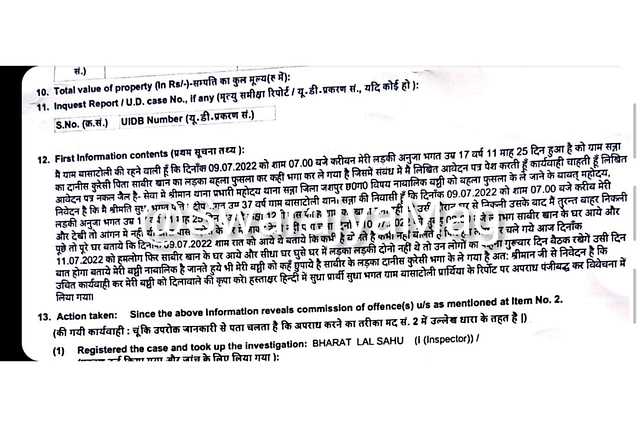 सं.)
10. Total value of property (In Rs/-)-सम्पति का कुल मूल्य(रु में):
11. Inquest Report / U.D. case No., if any (मृत्यु समीक्षा रिपोर्ट / यू.डी.प्रकरण सं., यदि कोई हो ):
S.No. (क्र.सं.) UIDB Number (यू.डी.प्रकरण सं.)
12. First Information contents (प्रथम सूचना तथ्य ):
मै ग्राम बासाटोली की रहने वाली हूँ कि दिनाँक 09.07.2022 को शाम 07.00 बजे करीवन मेरी लड़की अनुजा भगत उम्र 17 वर्ष 11 माह 25 दिन हुआ है को ग्राम सन्ना
का दानीस कुरेसी पिता साबीर खान का लड़का बहला फुसला कर कही भगा कर ले गया है जिसमें संबंध मे मै लिखित आवेदन पत्र पेश करती हूँ कार्यवाही चाहती हूँ लिखित
आवेदन पत्र नकल जैल है- सेवा मे श्रीमान थाना प्रभारी महोदय थाना सन्ना जिला जशपुर छ0ग0 विषय नाबालिक बच्ची को बहला फुसला के ले जाने के बावत् महोदय,
निवेदन है कि मै श्रीमति सुधा भगत उम्र 37 वर्ष ग्राम बासाटोली थाना सन्ना की निवासी हूँ कि दिनाँक 09.07.2022 को शाम 07.00 बजे करीब मेरी
लड़की अनुजा भगत उम्र से निकली उसके बाद मै तुरन्त बाहर निकली
और देखी तो आंगन मे नही भगत साबीर खान के घर आये और
पूछे तो पूरे घर बताये कि दिनाँक 09.07.2022 शाम रात को आये थे बताये कि चले गये आज दिनाँक
11.07.2022 को हमलोग फिर साबीर खान के घर आये और सीधा घर घुसे घर में लड़का लड़की दोनो नही थे तो उन लोगों का कहना गुरूवार दिन बैठक रखेगे उसी दिन
बात होगा बताये मेरी बच्ची नाबालिक है जानते हुये भी मेरी बच्ची को कहाँ छुपाये है साबीर के लड़का दानीस कुरेसी भगा के ले गया है अतः श्रीमान जी से निवेदन है कि
उचित कार्यवाही कर मेरी बच्ची को दिलावाने की कृपा करे। हस्ताक्षर हिन्दी में सुधा प्रार्थी सुधा भगत ग्राम बासाटोली प्रार्थिया के रिपोर्ट पर अपराध पंजीबद्ध कर विवेचना में
लिया गया।
@SwarajyaMag
13. Action taken: Since the above information reveals commission of offence(s) u/s as mentioned at Item No. 2.
(की गयी कार्यवाही : चूंकि उपरोक्त जानकारी से पता चलता है कि अपराध करने का तरीका मद सं. 2 में उल्लेख धारा के तहत है।)
(1) Registered the case and took up the investigation: BHARAT LAL SAHU (I (Inspector)) /